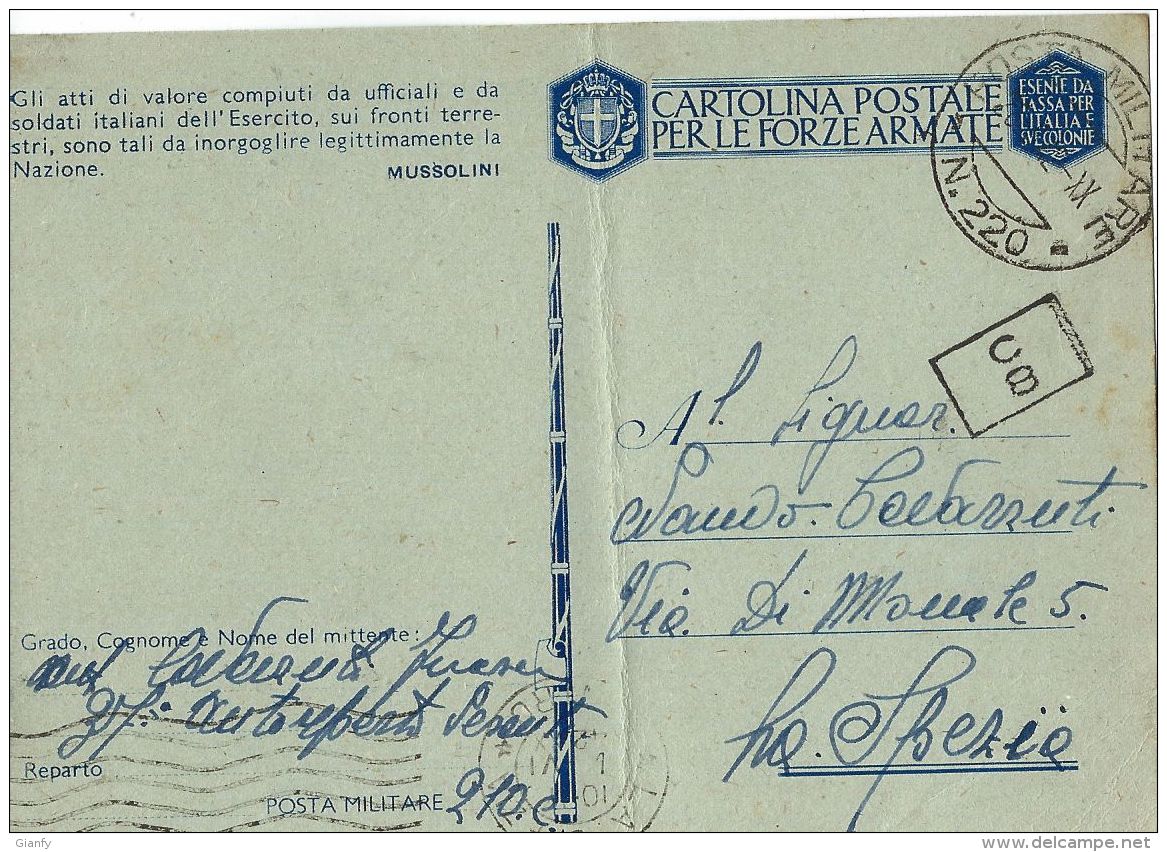 Gli atti di valore compiuti da ufficiali e da
soldati italiani dell'Esercito, sui fronti terre-
stri, sono tali da inorgoglire legittimamente la
Nazione.
MUSSOLINI
CARTOLINA POSTALE
PER LE FORZE ARMATE
ESENTE DA
TASSA PER
L'ITALIA E
SVE COLONIE
POSTA MILITARE
XX
N. 220
C8
Al. Signor.
Cavazzuti
Via Di Monale 5.
La. Spezia
Grado, Cognome e Nome del mittente:
Cavazzuti
Reparto
POSTA MILITARE 210.
Gianfy
www.delcampe.net